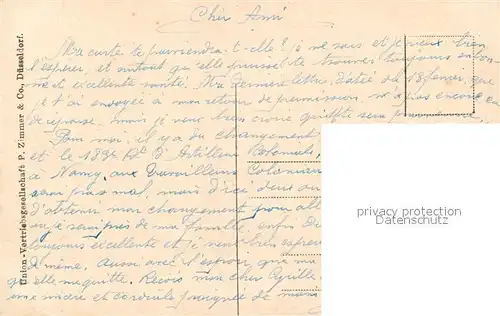 Cher Ami
Ma carte te parviendra-t-elle? je ne sais et je veux bien
l'espérer, et surtout qu'elle puisse te trouver toujours en bon
ne et excellente santé. Ma dernière lettre, datée du 18 février, que
je t'ai envoyée à mon retour de permission, n'a pas encore eu
de réponse. mais je veux bien croire qu'elle sera
Pour moi, il y a du changement
et le 183e d'Artillerie Coloniale,
à Nancy, aux Travailleurs Coloniaux
serai pas mal, mais d'ici deux ou
d'obtenir mon changement pour all
où je serai près de ma famille, enfin
toujours excellente et je veux bien espérer
de même. Aussi avec l'espoir que ma
qu'elle me quitte. Reçois mon cher Cyrille,
une sincère et cordiale poignée de main
Union-Vertriebsgesellschaft P. Zimmer & Co., Düsseldorf.
privacy protection
www.oldthing.de